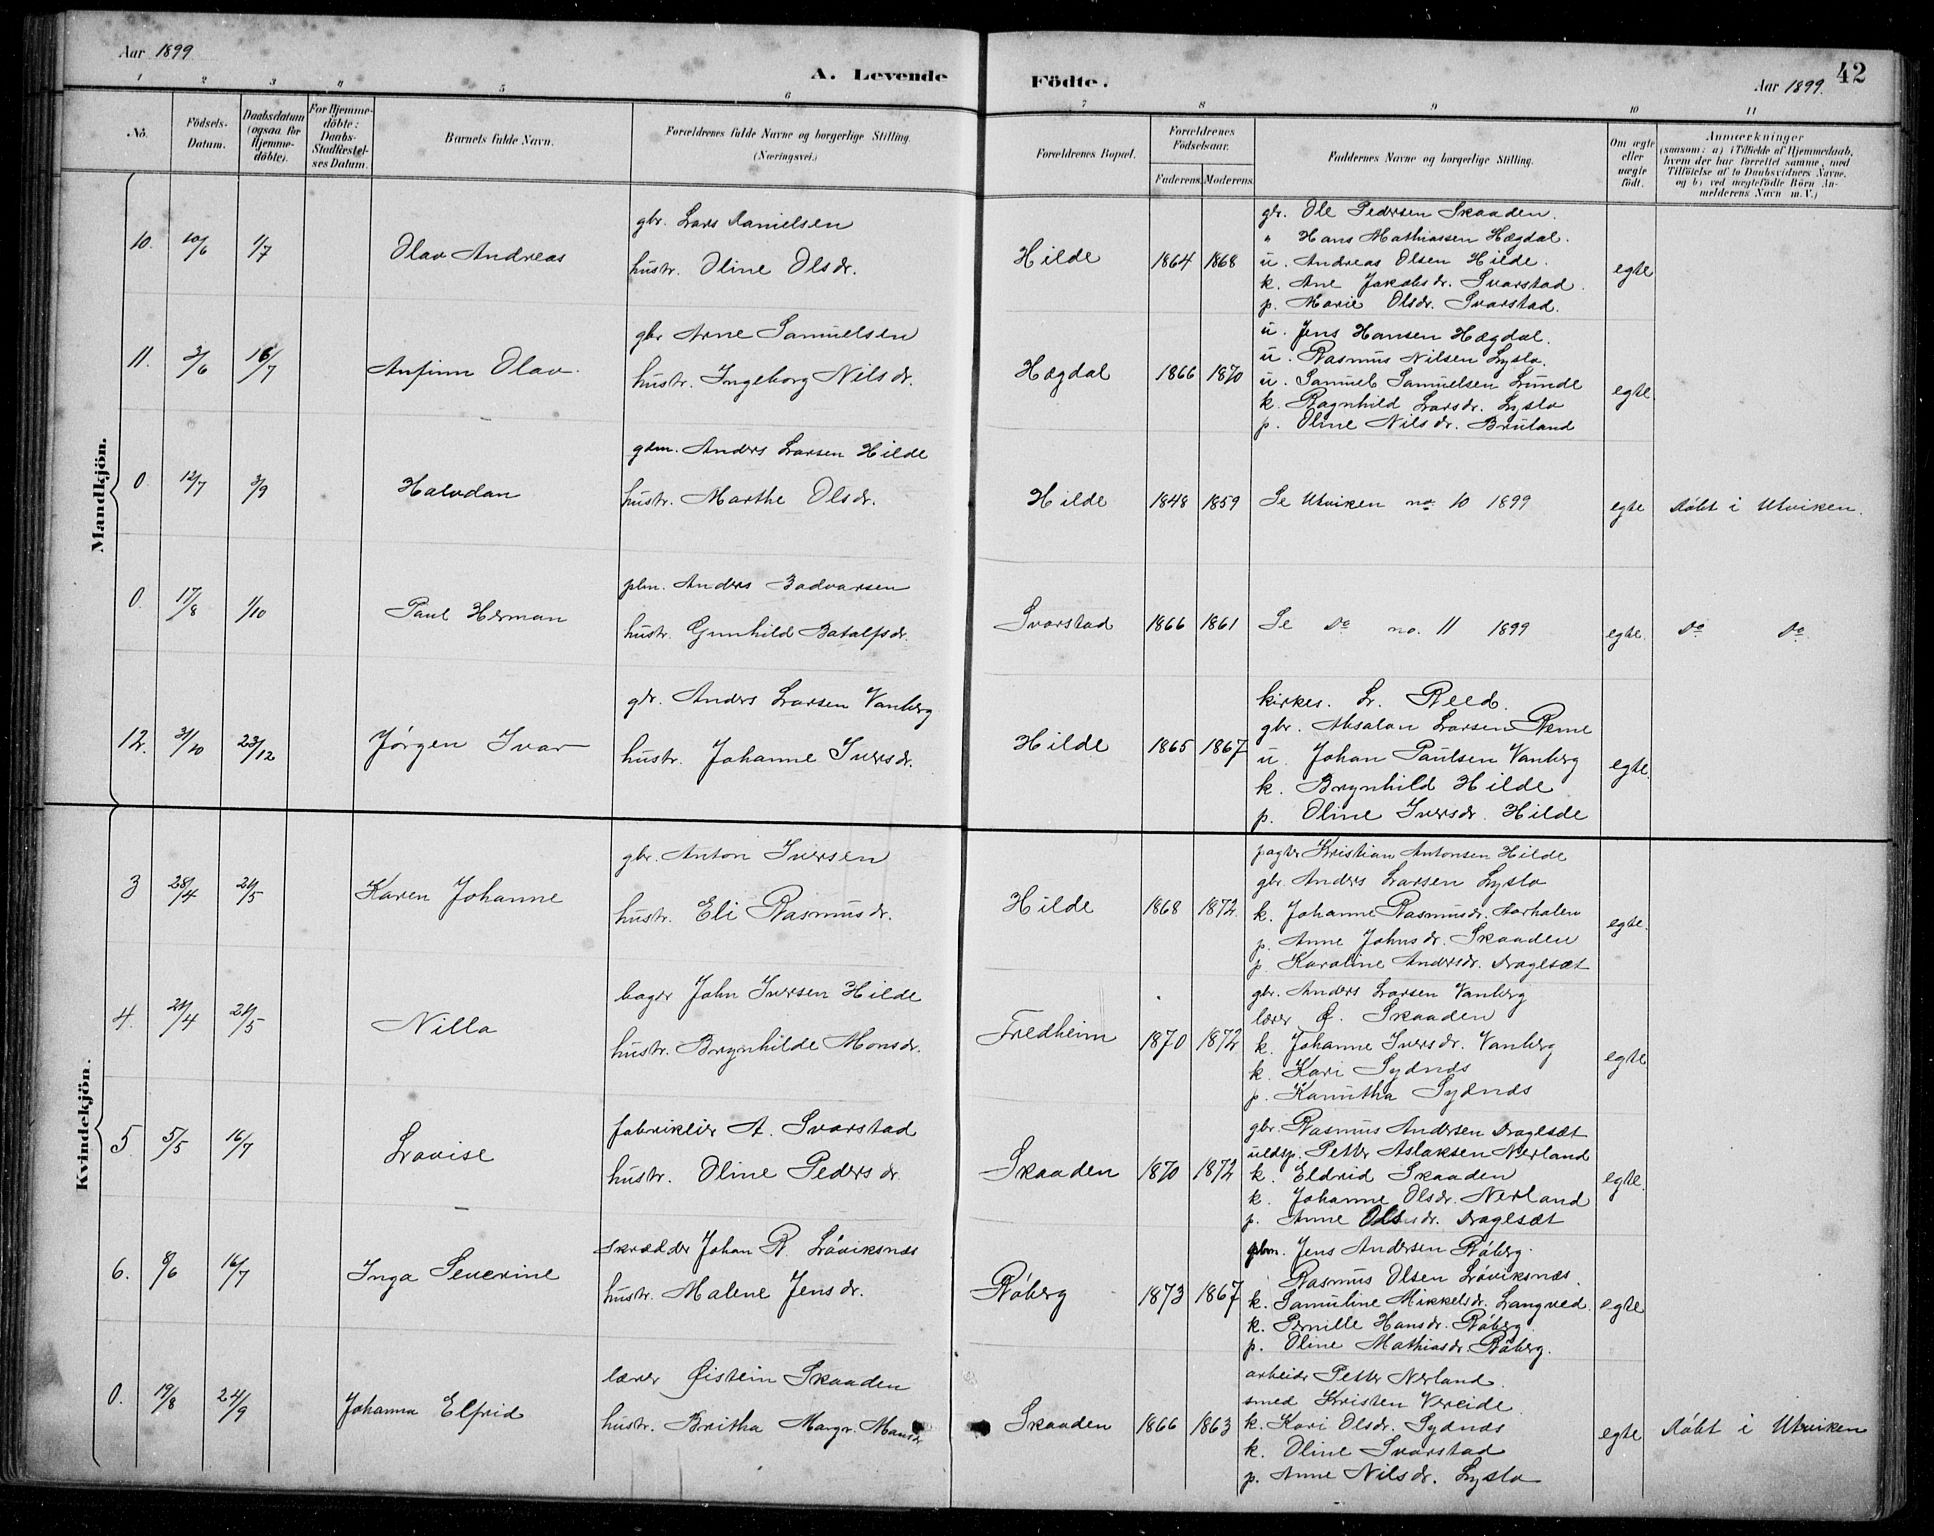 Aar 1899
A. Levende Födte.
Aar 1899.
42
1 2 3 4 5 6 7 8 9 10 11
No.
Födsels-Datum.
Daabsdatum (ogsaa for Hjemmedöbte).
For Hjemmedöbte: Daabs-Stadfæstelses Datum.
Barnets fulde Navn.
Forældrenes fulde Navne og borgerlige Stilling (Næringsvei.)
Forældrenes Bopæl.
Forældrenes Födselsaar.
Faderens. Moderens.
Faddernes Navne og borgerlige Stilling.
Om ægte eller uægte födt.
Anmærkninger
(saasom: a) i Tilfælde af Hjemmedaab,
hvem der har forrettet samme, med
Tilföielse af to Daabsvidners Navne.
og b) ved uægtefödte Börn An-
melderens Navn m. V.)
Mandkjön.
10. 10/6 1/7 Olav Andreas
gbr. Lars Danielsen
hustr. Oline Olsdr.
Hilde 1864 1868
gbr. Ole Pedersen Skaaden.
" Hans Mathiassen Hægdal.
u. Andreas Olsen Hilde.
k. Ane Jakobsdr. Svarstad.
p. Marie Olsdr. Svarstad.
egte
11. 3/6 16/7 Anfinn Olav.
gbr Arne Samuelsen
hustr. Ingeborg Nilsdr.
Hægdal 1866 1870
u. Jens Hansen Hægdal.
u. Rasmus Nilsen Lyslo.
u. Samuel Samuelsen Lunde
k. Ragnhild Larsdr. Lyslo
p. Oline Nilsdr. Bruland
egte
0 12/7 3/9 Halvdan
gdm. Anders Larsen Hilde
hustr. Marthe Olsdr.
Hilde 1848 1859 Se Utviken no. 10 1899 egte Døbt i Utviken.
0. 17/8 1/10 Paul Herman
plm. Anders Badvarsen
hustr. Gunhild Botolfsdr.
Svarstad 1866 1861 Se Do no. 11 1899 egte. Do Do
12. 31/10 23/12 Jørgen Ivar
gbr. Anders Larsen Vanberg
hustr. Johanne Iversdr.
Hilde 1865 1867
kirkes. L. Reed.
gbr. Absalon Larsen Reme
u. Johan Paulsen Vanberg
k. Brynhild Hilde
p. Oline Iversdr. Hilde
egte.
Kvindekjön.
3 28/4 21/5 Karen Johanne
gbr. Anton Iversen
hustr. Eli Rasmusdr.
Hilde 1868 1872
pagtr Kristian Antonsen Hilde
gbr. Anders Larsen Lyslo
k. Johanne Rasmusdr. Aarholen
p. Anne Johnsdr. Skaaden
p. Karoline Andersdr. Dragesæt
egte.
4. 21/4 21/5 Nilla
bager John Iversen Hilde
hustr. Brynhilde Monsdr.
Fredheim 1870 1872
gbr. Anders Larsen Vanberg
lærer Ø. Skaaden
k. Johanne Iversdr. Vanberg
k. Kari Sydnæs
p. Kanutha Sydnæs
egte
5. 5/5 16/7 Lovise
fabrikeier A. Svarstad
hustr. Oline Pedersdr.
Skaaden 1870 1872
gbr. Rasmus Andersen Dragesæt
Petter Aslaksen Nerland
k. Eldrid Skaaden
k. Johanne Olsdr. Nerland
p. Anne Olsdr. Dragesæt
egte.
6. 8/6 16/7 Inga Severine
skrædder Johan R. Løviksnæs
hustr. Malene Jensdr.
Røberg 1873 1867
plm. Jens Andersen Røberg.
Rasmus Olsen Løviksnæs.
k. Samuline Mikkelsdr. Langved.
k. Pernille Hansdr. Røberg.
p. Oline Mathiasdr. Røberg.
egte
0. 19/8 24/9 Johanna Elfrid
lærer Øistein Skaaden
hustr. Britha Margr. Mansdr
Skaaden 1866 1863
arbeider Petter Nerland.
smed Kristen Vereide.
k. Kari Olsdr. Sydnæs
k. Oline Svarstad
p. Anne Nilsdr. Lyslo
egte Døbt i Utviken